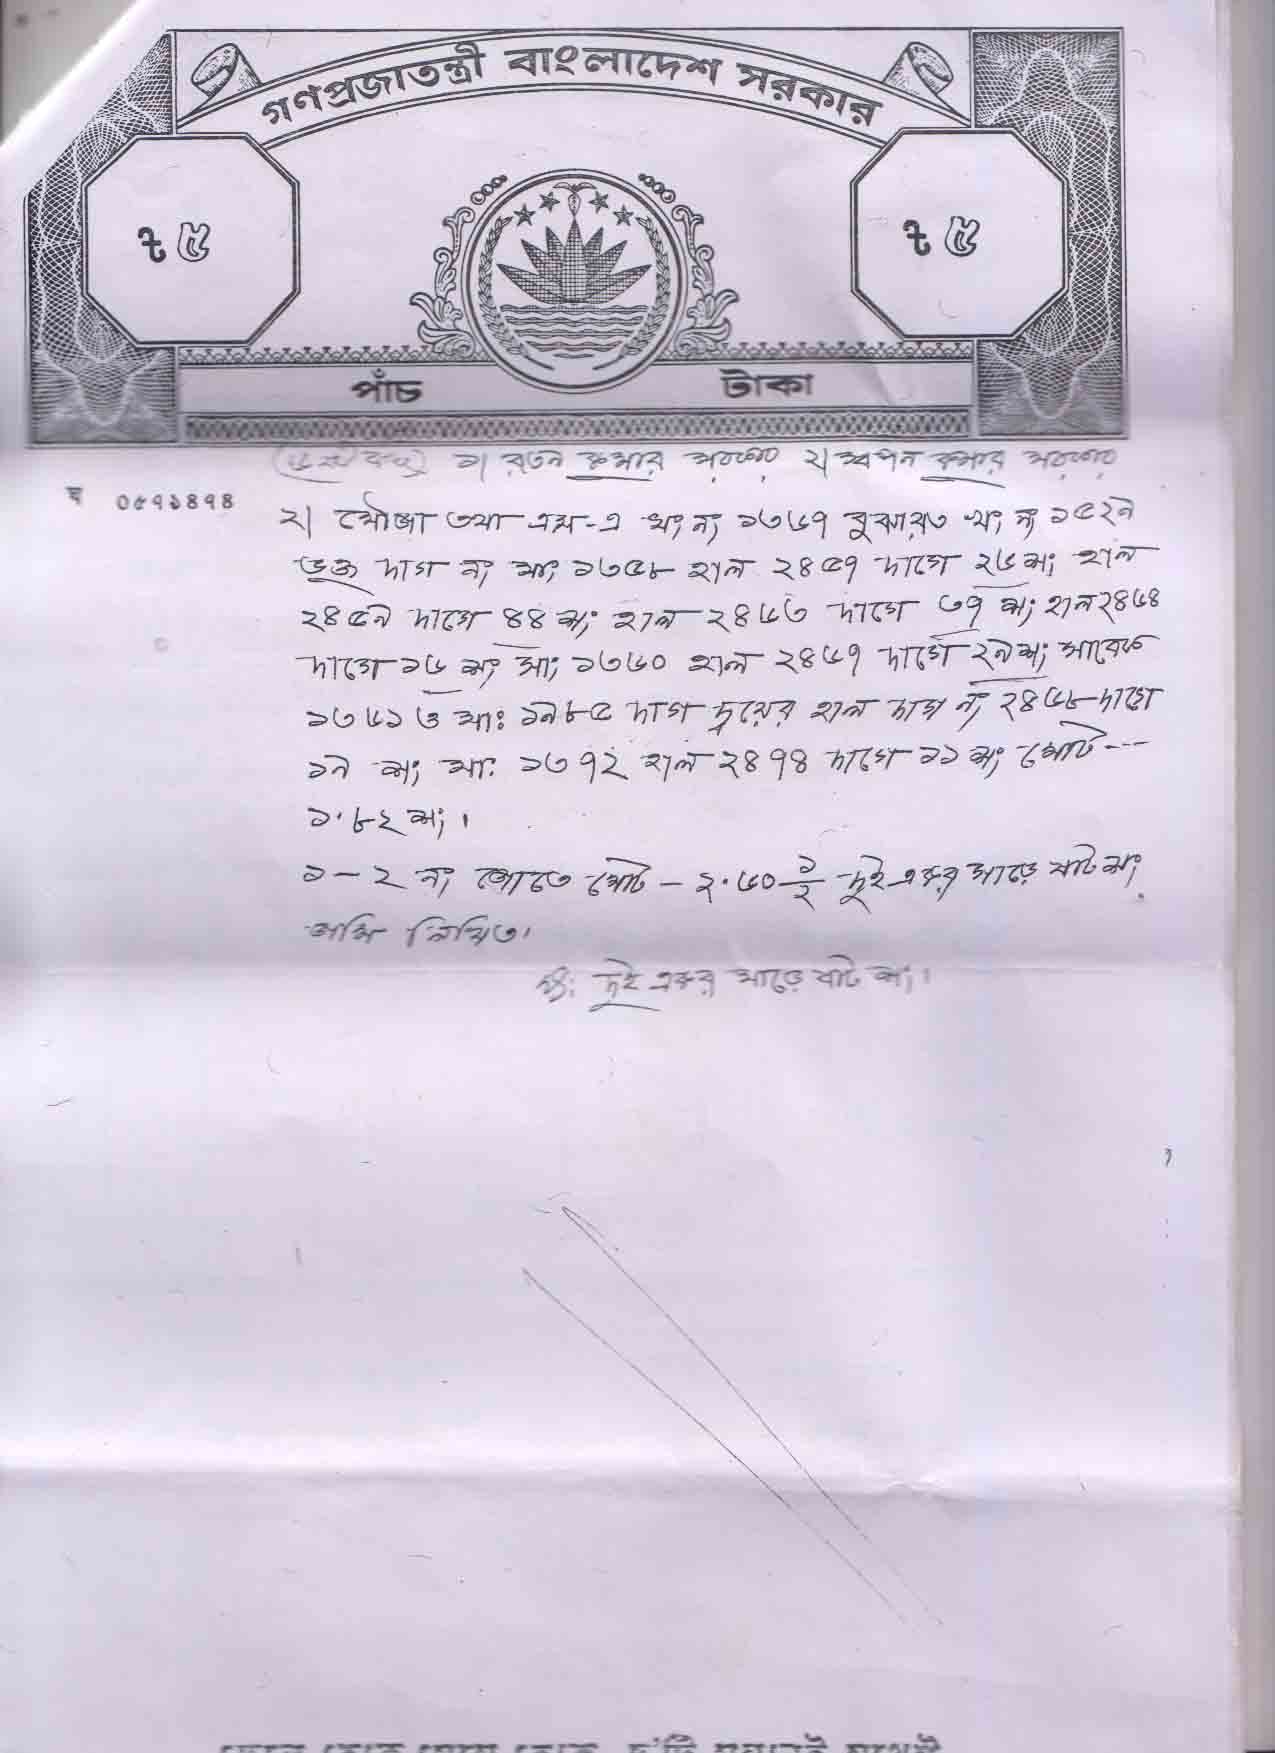 গণপ্রজাতন্ত্রী বাংলাদেশ সরকার
৳ ৫
৳ ৫
পাঁচ টাকা
১। রতন কুমার সরকার ২। স্বপন কুমার সরকার
ঘ ০৫৭১৪৭৪
২। মৌজা তথা এস-এ খং নং ১৩৬৭ বুঝারত খং নং ১৫২৯
ভুক্ত দাগ নং সাং ১৩৫৮ হাল ২৪৫৭ দাগে ২৬ শং হাল
২৪৫৯ দাগে ৪৪ শং হাল ২৪৬৩ দাগে ৩৭ শং হাল ২৪৬৪
দাগে ১৬ শং সাং ১৩৬০ হাল ২৪৬৭ দাগে ২৯ শং সাবেক
১৩৬১ ও সাঃ ১৯৮৫ দাগ দ্বয়ের হাল দাগ নং ২৪৬৮ দাগে
১৯ শং সাং ১৩৭২ হাল ২৪৭৪ দাগে ১১ শং মোট ---
১.৮২ শং।
১ - ২ নং জোতে মোট - ২.৬০ ১/২ দুই একর সাড়ে ষাট শং
জমি লিখিত।
দুই একর সাড়ে ষাট শং।